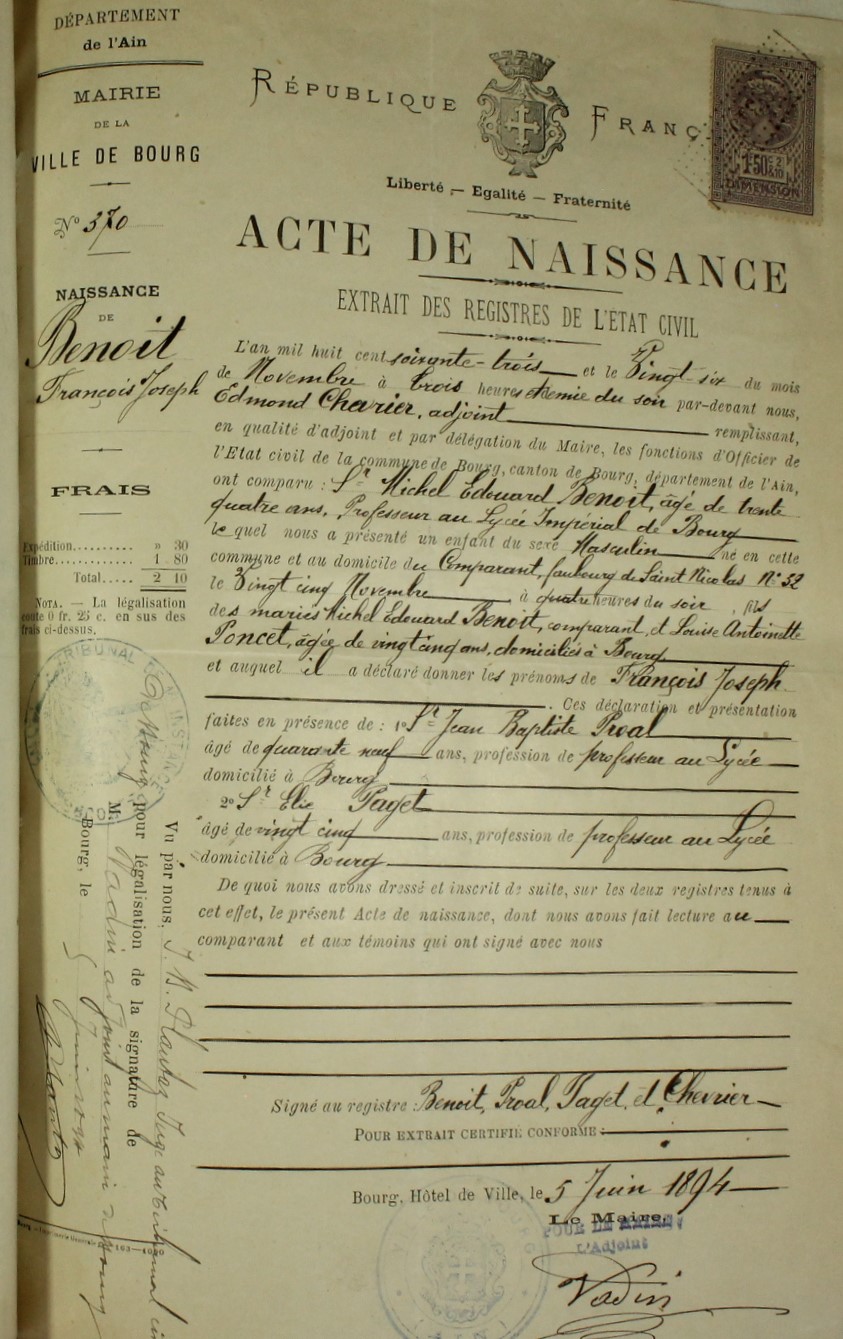 DÉPARTEMENT
de l'Ain
MAIRIE
DE LA
VILLE DE BOURG
Nº 370
NAISSANCE
DE
Benoit
François Joseph
FRAIS
Expédition.......... » 30
Timbre............. 1 80
Total..... 2 10
NOTA. — La légalisation
coute 0 fr. 25 c. en sus des
frais ci-dessus.
RÉPUBLIQUE FRANÇ
1F50c 2/10
DIMENSION
Liberté — Egalité — Fraternité
ACTE DE NAISSANCE
EXTRAIT DES REGISTRES DE L'ÉTAT CIVIL
L'an mil huit cent soixante-trois et le Vingt six du mois
de Novembre à trois heures et demie du soir par-devant nous,
Edmond Chevrier, adjoint remplissant,
en qualité d'adjoint et par délégation du Maire, les fonctions d'Officier de
l'Etat civil de la commune de Bourg, canton de Bourg, département de l'Ain,
ont comparu : Sr Michel Edouard Benoit, âgé de trente
quatre ans, Professeur au Lycée Impérial de Bourg
le quel nous a présenté un enfant du sexe Masculin né en cette
commune et au domicile du Comparant, faubourg de Saint Nicolas Nº 32
le Vingt cinq Novembre à quatre heures du soir, fils
des mariés Michel Edouard Benoit, comparant, et Louise Antoinette
Poncet, âgée de vingt cinq ans, domiciliés à Bourg
et auquel il a déclaré donner les prénoms de François Joseph
. Ces déclaration et présentation
faites en présence de : 1º Sr Jean Baptiste Proal
âgé de quarante neuf ans, profession de professeur au Lycée
domicilié à Bourg
2º Sr Elie Paget
âgé de vingt cinq ans, profession de professeur au Lycée
domicilié à Bourg
De quoi nous avons dressé et inscrit de suite, sur les deux registres tenus à
cet effet, le présent Acte de naissance, dont nous avons fait lecture au
comparant et aux témoins qui ont signé avec nous
Signé au registre : Benoit, Proal, Paget, et Chevrier
POUR EXTRAIT CERTIFIÉ CONFORME :
Bourg, Hôtel de Ville, le 5 Juin 1894
Le Maire,
POUR LE MAIRE :
L'Adjoint
Vadin
Vu par nous, J. B. Juge au tribunal
pour légalisation de la signature de
M. Vadin adjoint au maire de Bourg
Bourg, le 5 Juin